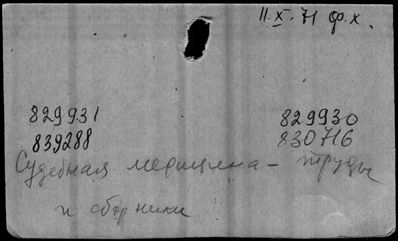 11.X.71 ф.х.
829931 829930
839288 830716
Судебная медицина - труды
и сборники